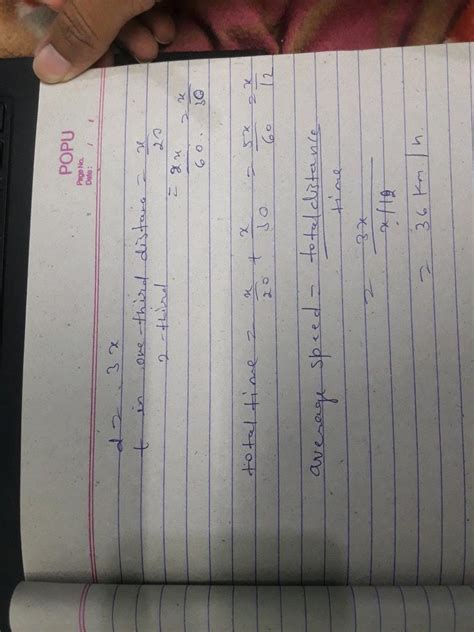 POPU
Page No.
Date : / /
d = 3x
t in one-third distan = x/20
2-third = 2x/60 = x/30
total time = x/20 + x/30 = 5x/60 = x/12
average speed = total distance/time
= 3x/x/12
= 36 km/h.